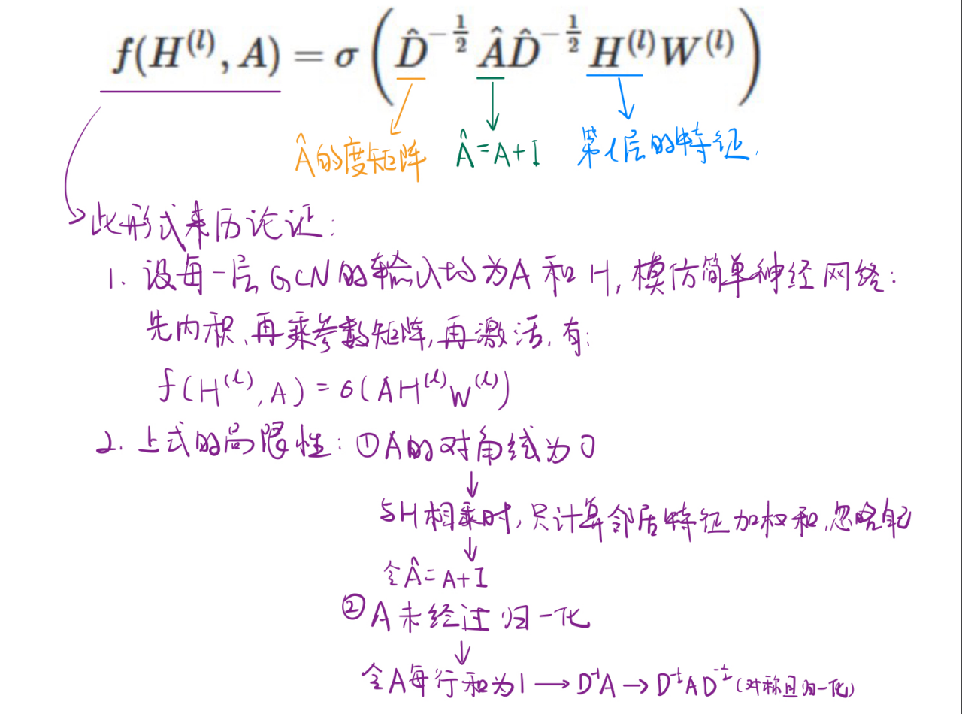 f(H^(l), A) = σ(D̂^(-1/2) Â D̂^(-1/2) H^(l) W^(l))
Â的度矩阵 Â=A+I 第l层的特征.
此形式来历论证:
1. 设每一层GCN的输入均为A和H,模仿简单神经网络:
先内积,再乘参数矩阵,再激活,有:
f(H^(l), A) = σ(AH^(l)W^(l))
2. 上式的局限性: ①A的对角线为0
与H相乘时,只计算邻居特征加权和,忽略自己
令Â=A+I
②A未经过归一化
令A每行和为1 → D^-1A → D^(-1/2)AD^(-1/2) (对称且归一化)